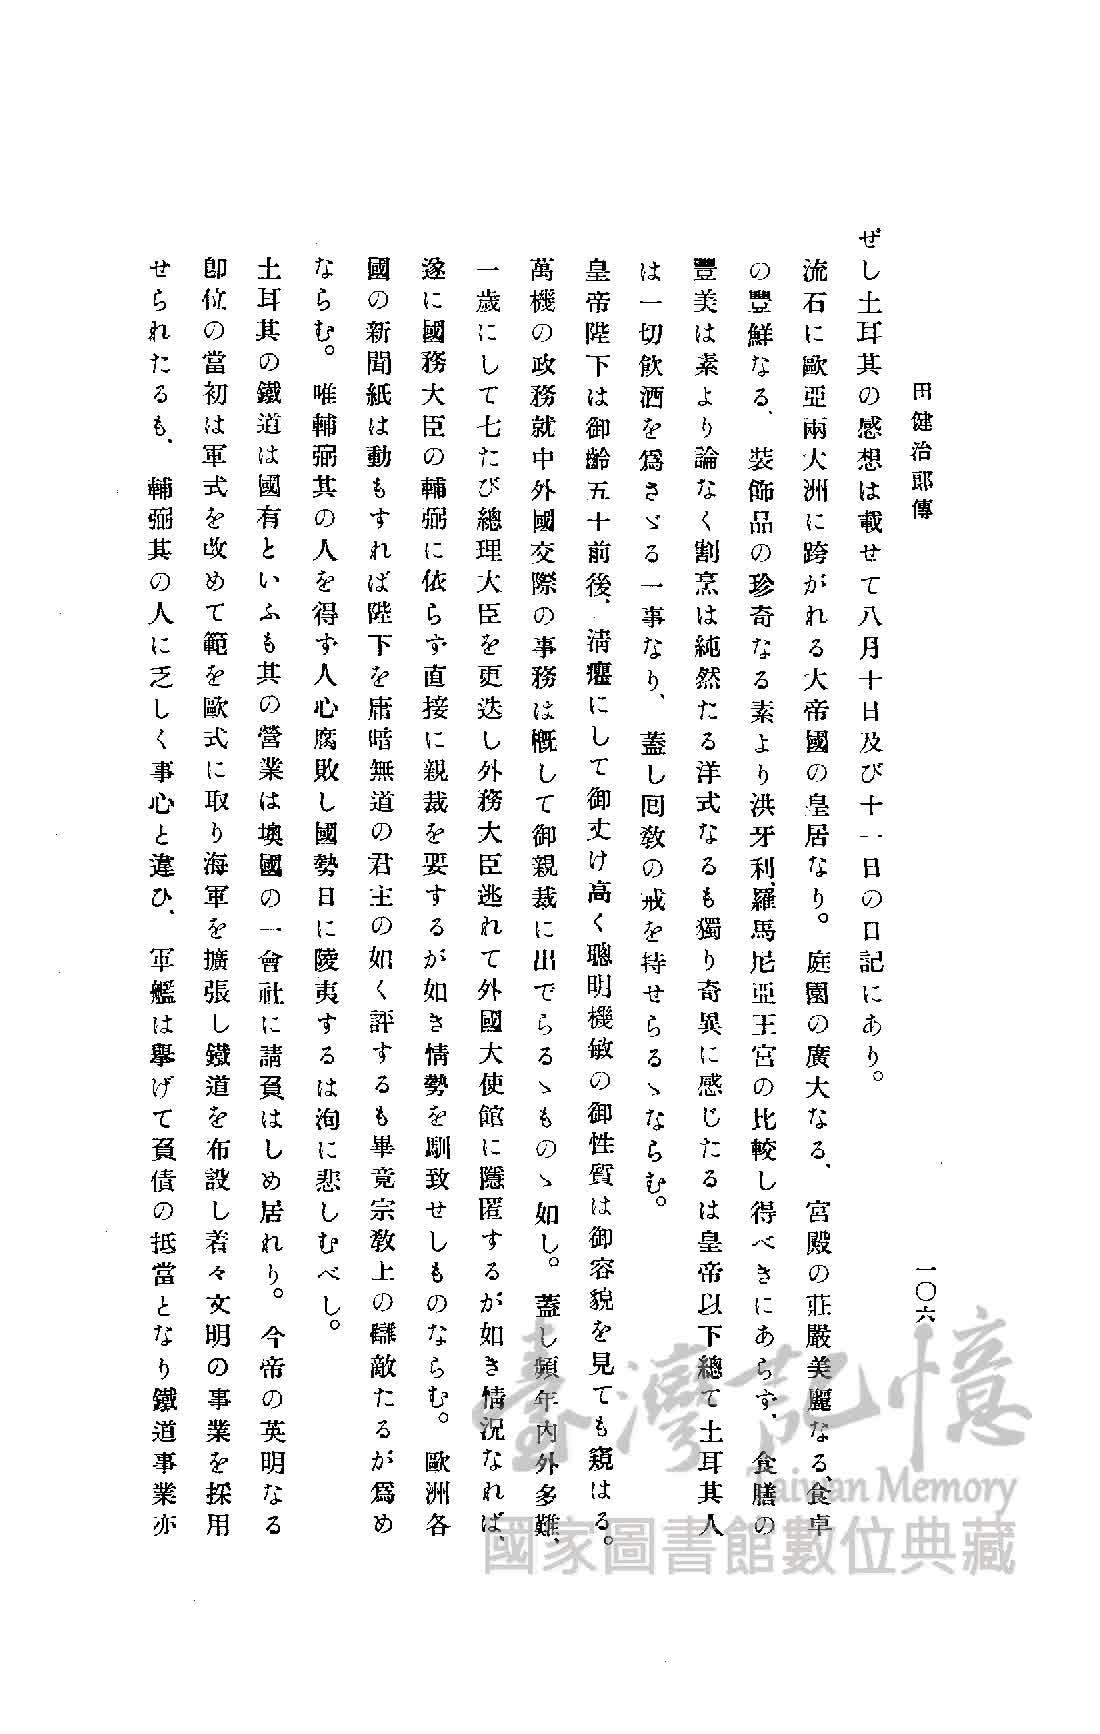 田健治郎傳
一〇六
ぜし土耳其の感想は載せて八月十日及び十一日の日記にあり。
流石に歐亞兩大洲に跨がれる大帝國の皇居なり。庭園の廣大なる、宮殿の莊嚴美麗なる、食卓
の豐鮮なる、裝飾品の珍奇なる素より洪牙利、羅馬尼亞王宮の比較し得べきにあらず、食膳の
豐美は素より論なく割烹は純然たる洋式なるも獨り奇異に感じたるは皇帝以下總て土耳其人
は一切飮酒を爲さゞる一事なり、蓋し囘敎の戒を持せらるゝならむ。
皇帝陛下は御齡五十前後、淸癯にして御丈け高く聰明機敏の御性質は御容貌を見ても窺はる。
萬機の政務就中外國交際の事務は槪して御親裁に出でらるゝものゝ如し。蓋し頻年內外多難、
一歲にして七たび總理大臣を更迭し外務大臣逃れて外國大使館に隱匿するが如き情況なれば、
遂に國務大臣の輔弼に依らず直接に親裁を要するが如き情勢を馴致せしものならむ。歐洲各
國の新聞紙は動もすれば陛下を庸暗無道の君主の如く評するも畢竟宗敎上の讎敵たるが爲め
ならむ。唯輔弼其の人を得ず人心腐敗し國勢日に陵夷するは洵に悲しむべし。
土耳其の鐵道は國有といふも其の營業は墺國の一會社に請負はしめ居れり。今帝の英明なる
卽位の當初は軍式を改めて範を歐式に取り海軍を擴張し鐵道を布設し着々文明の事業を採用
せられたるも、輔弼其の人に乏しく事心と違ひ、軍艦は擧げて負債の抵當となり鐵道事業亦
臺灣記憶
Taiwan Memory
國家圖書館數位典藏